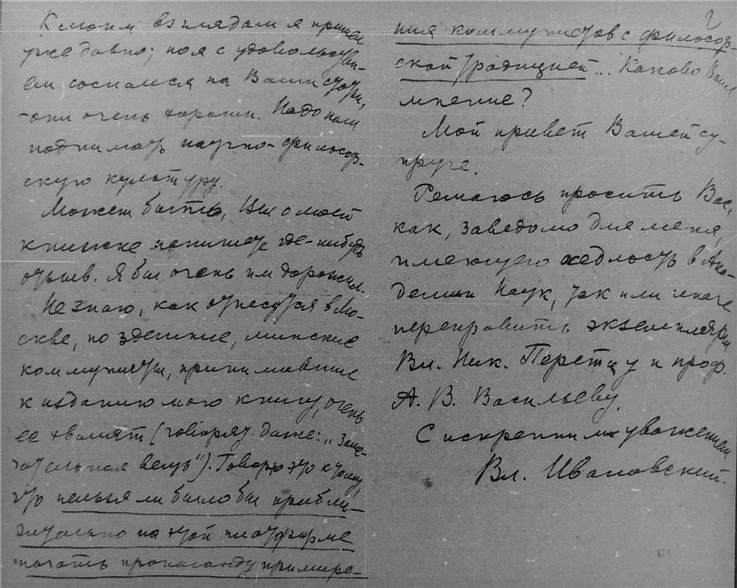 К моим взглядам я пришел
уже давно; но я с удовольстви-
ем сослался на Ваши статьи,
- они очень хороши. Надо нам
поднимать научно-философ-
скую культуру.
Может быть, Вы о моей
книжке напишете где-нибудь
отзыв. Я бы очень им дорожил.
Не знаю, как отнесутся в Мо-
скве, но здешние, минские
коммунисты, принимавшие
к изданию мою книгу, очень
ее хвалят (говорят даже: „заме-
чательная вещь“). Говорю это к тому,
что нельзя ли было бы прибли-
зительно на этой платформе
начать пропаганду примире-
2
ния коммунистов с философ-
ской традицией... Каково Ваше
мнение?
Мой привет Вашей су-
пруге.
Решаюсь просить Вас,
как, заведомо для меня,
имеющего оседлость в Ака-
демии Наук, так или иначе
переправить экземпляры
Вл. Ник. Перетцу и проф.
А. В. Васильеву.
С искренним уважением
Вл. Ивановский.